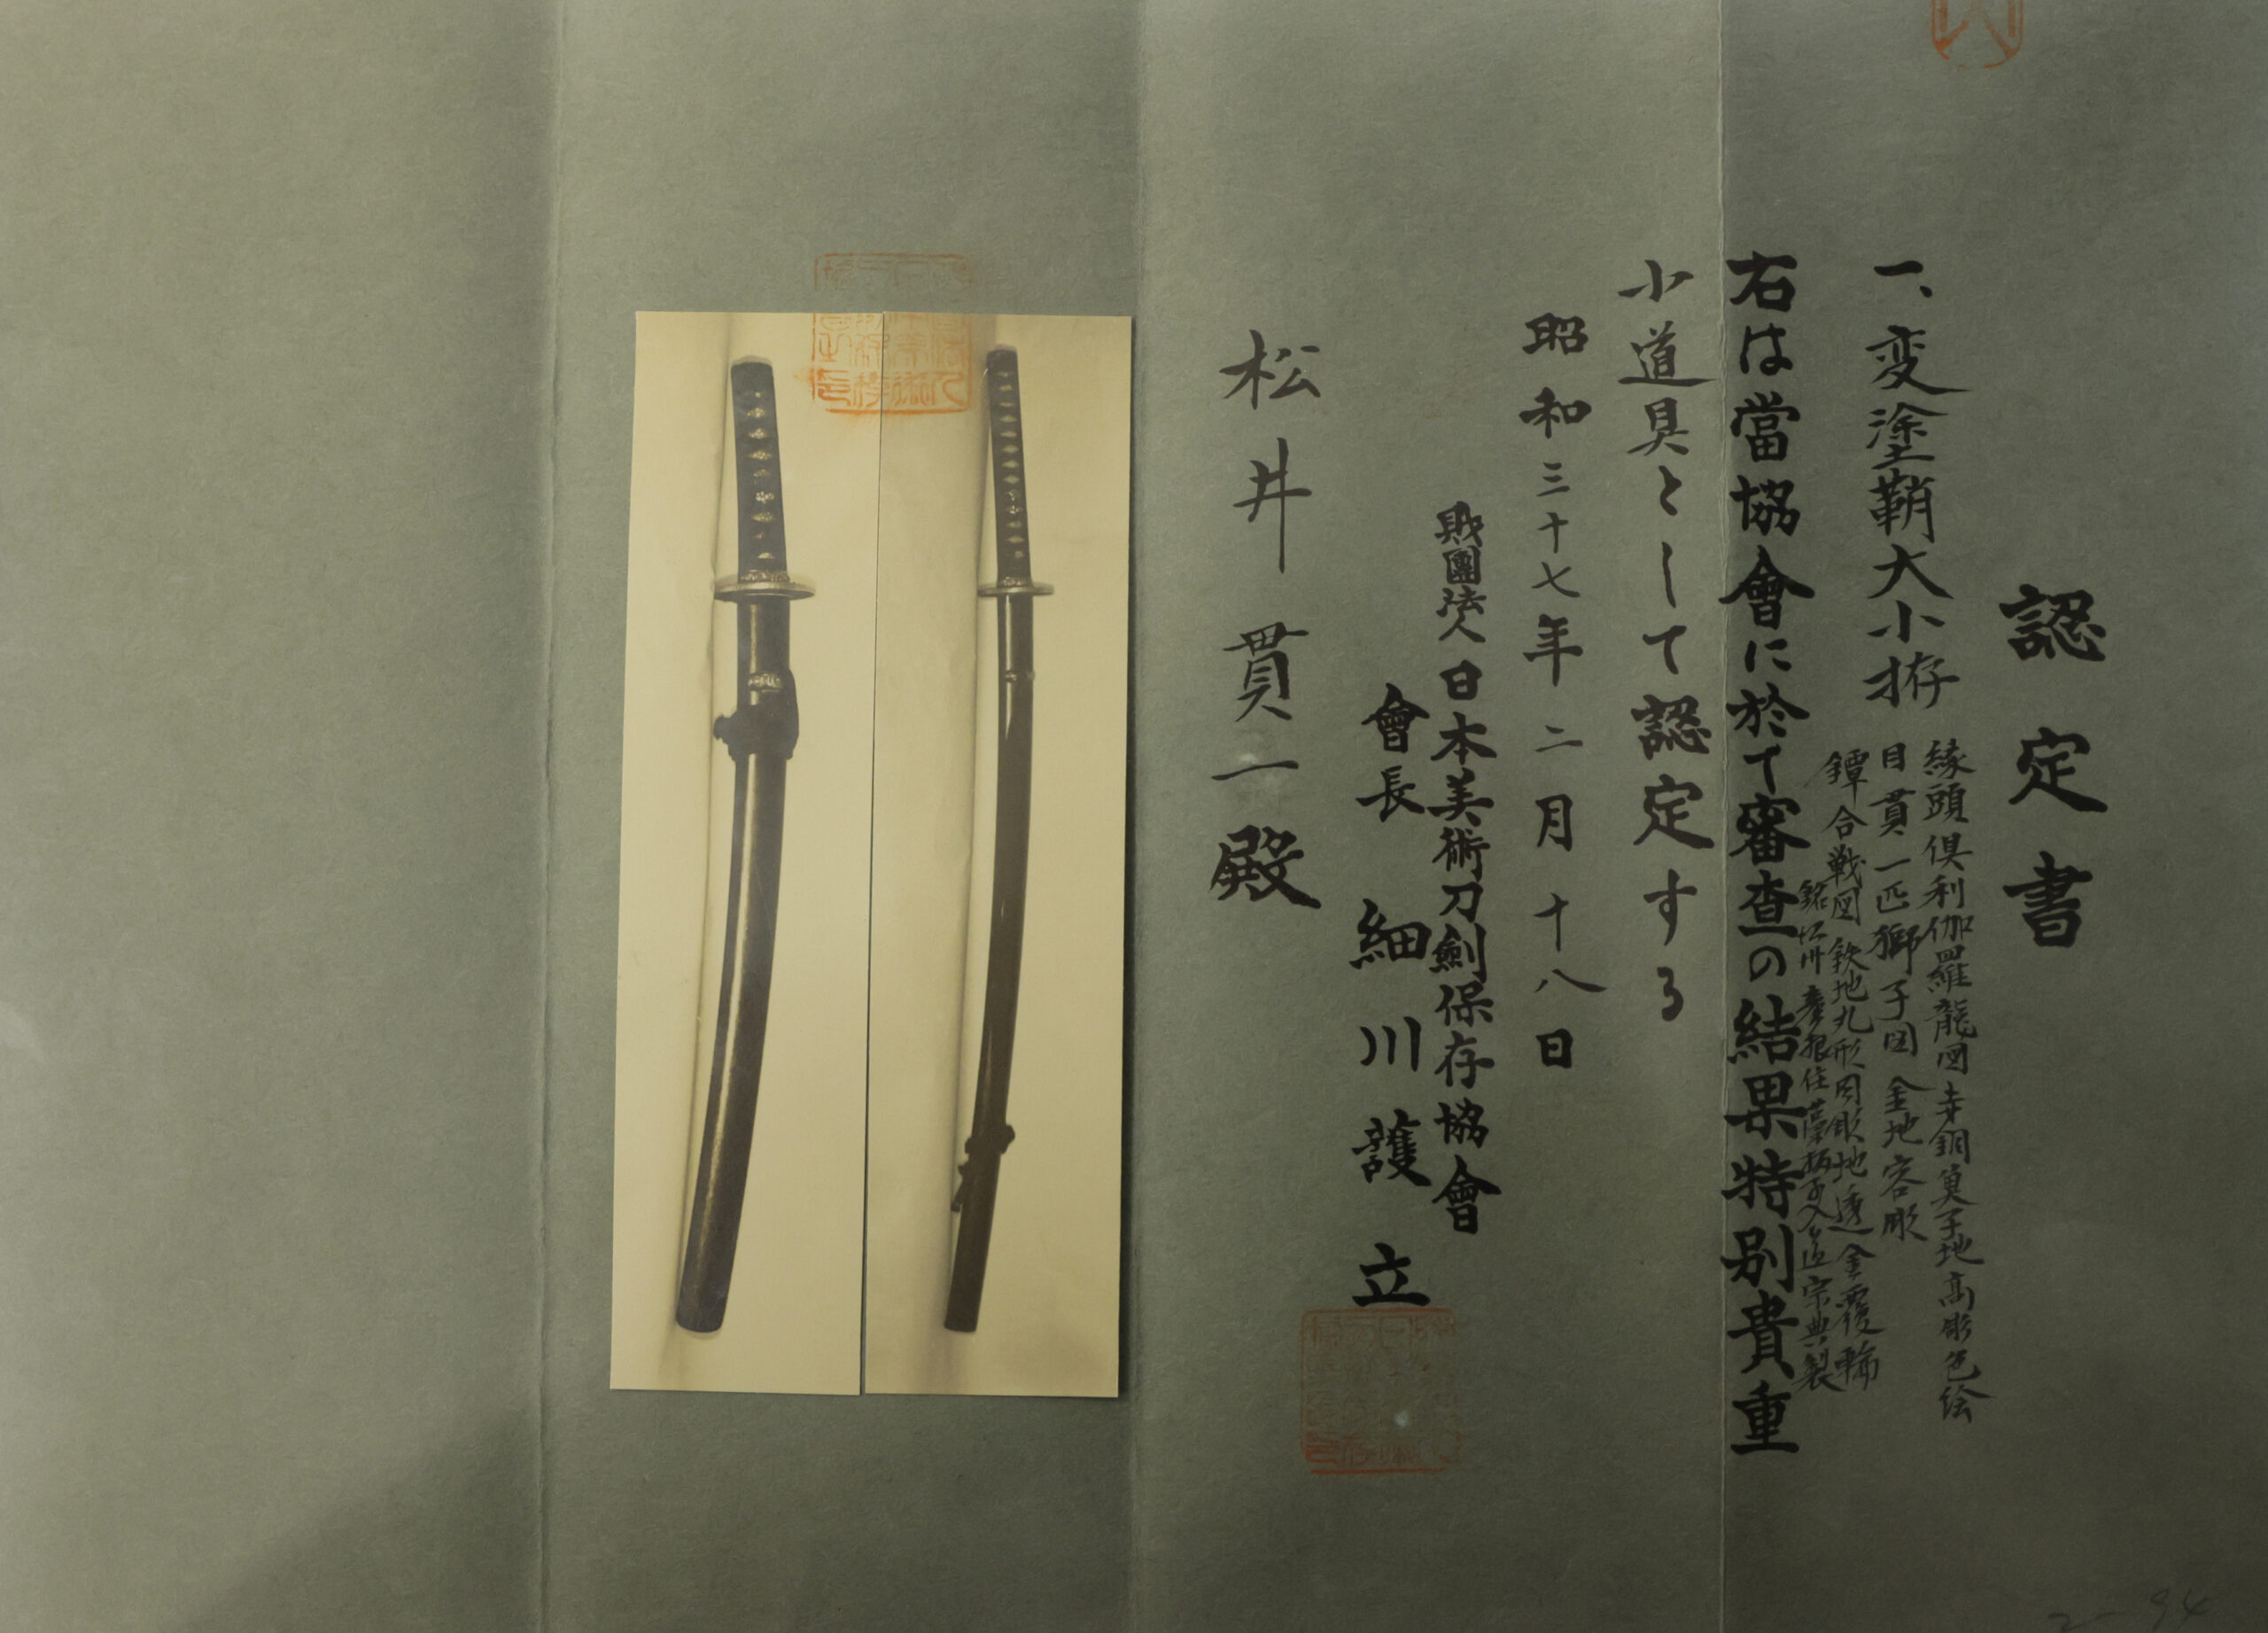 認定書
一、変塗鞘大小拵
縁頭倶利伽羅龍図 赤銅魚子地高彫色絵
目貫一匹獅子図 金地容彫
鐔合戦図 鉄地丸形肉彫地透金覆輪
銘江州彦根住藻柄子入道宗典製
右は當協會に於て審査の結果特別貴重
小道具として認定する
昭和三十七年二月十八日
財團法人日本美術刀剣保存協會
會長 細川護立
松井貫一殿
2-94